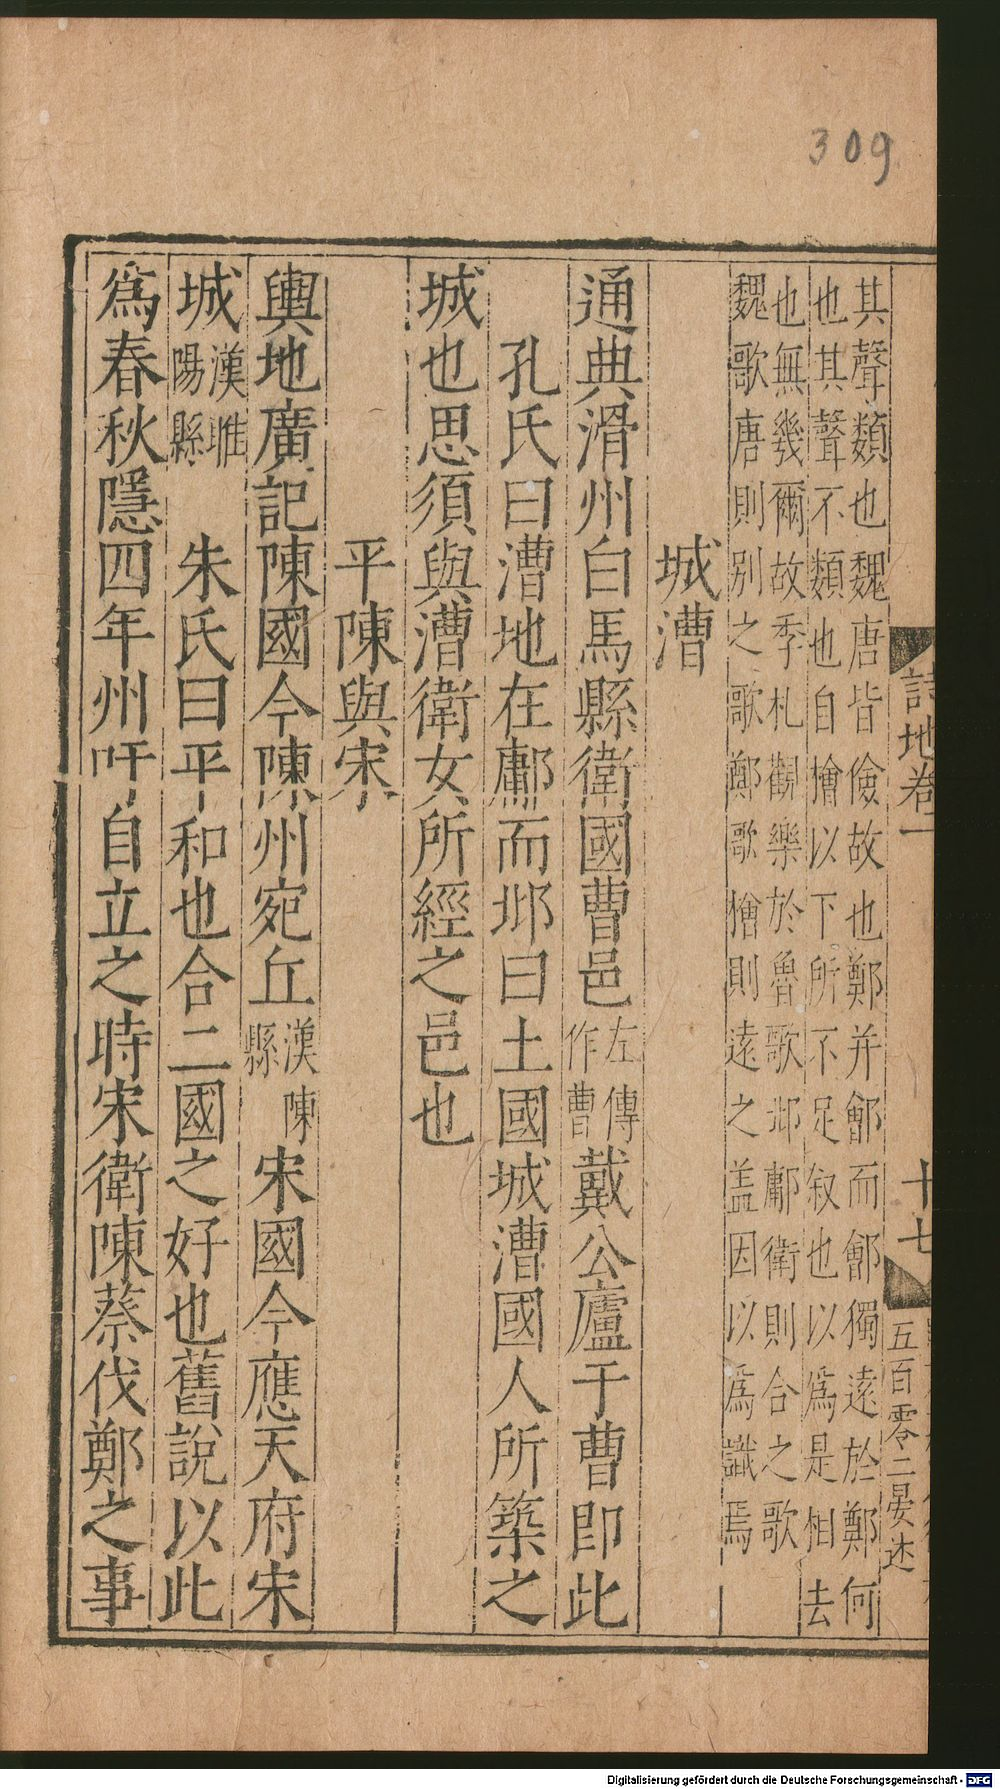 309
詩地卷一
十七
五百零二晏述
其聲類也魏唐皆儉故也鄭并鄶而鄶獨遠於鄭何
也其聲不類也自檜以下所不足叙也以爲是相去
也無幾爾故季札觀樂於魯歌邶鄘衛則合之歌
魏歌唐則别之歌鄭歌檜則遠之盖因以爲識焉
城漕
通典滑州白馬縣衛國曹邑左傳作曹戴公廬于曹即此
孔氏曰漕地在鄘而邶曰土國城漕國人所築之
城也思須與漕衛女所經之邑也
平陳與宋
輿地廣記陳國今陳州宛丘漢陳縣宋國今應天府宋
城漢睢陽縣 朱氏曰平和也合二國之好也舊說以此
爲春秋隱四年州吁自立之時宋衛陳蔡伐鄭之事
Digitalisierung gefördert durch die Deutsche Forschungsgemeinschaft - DFG